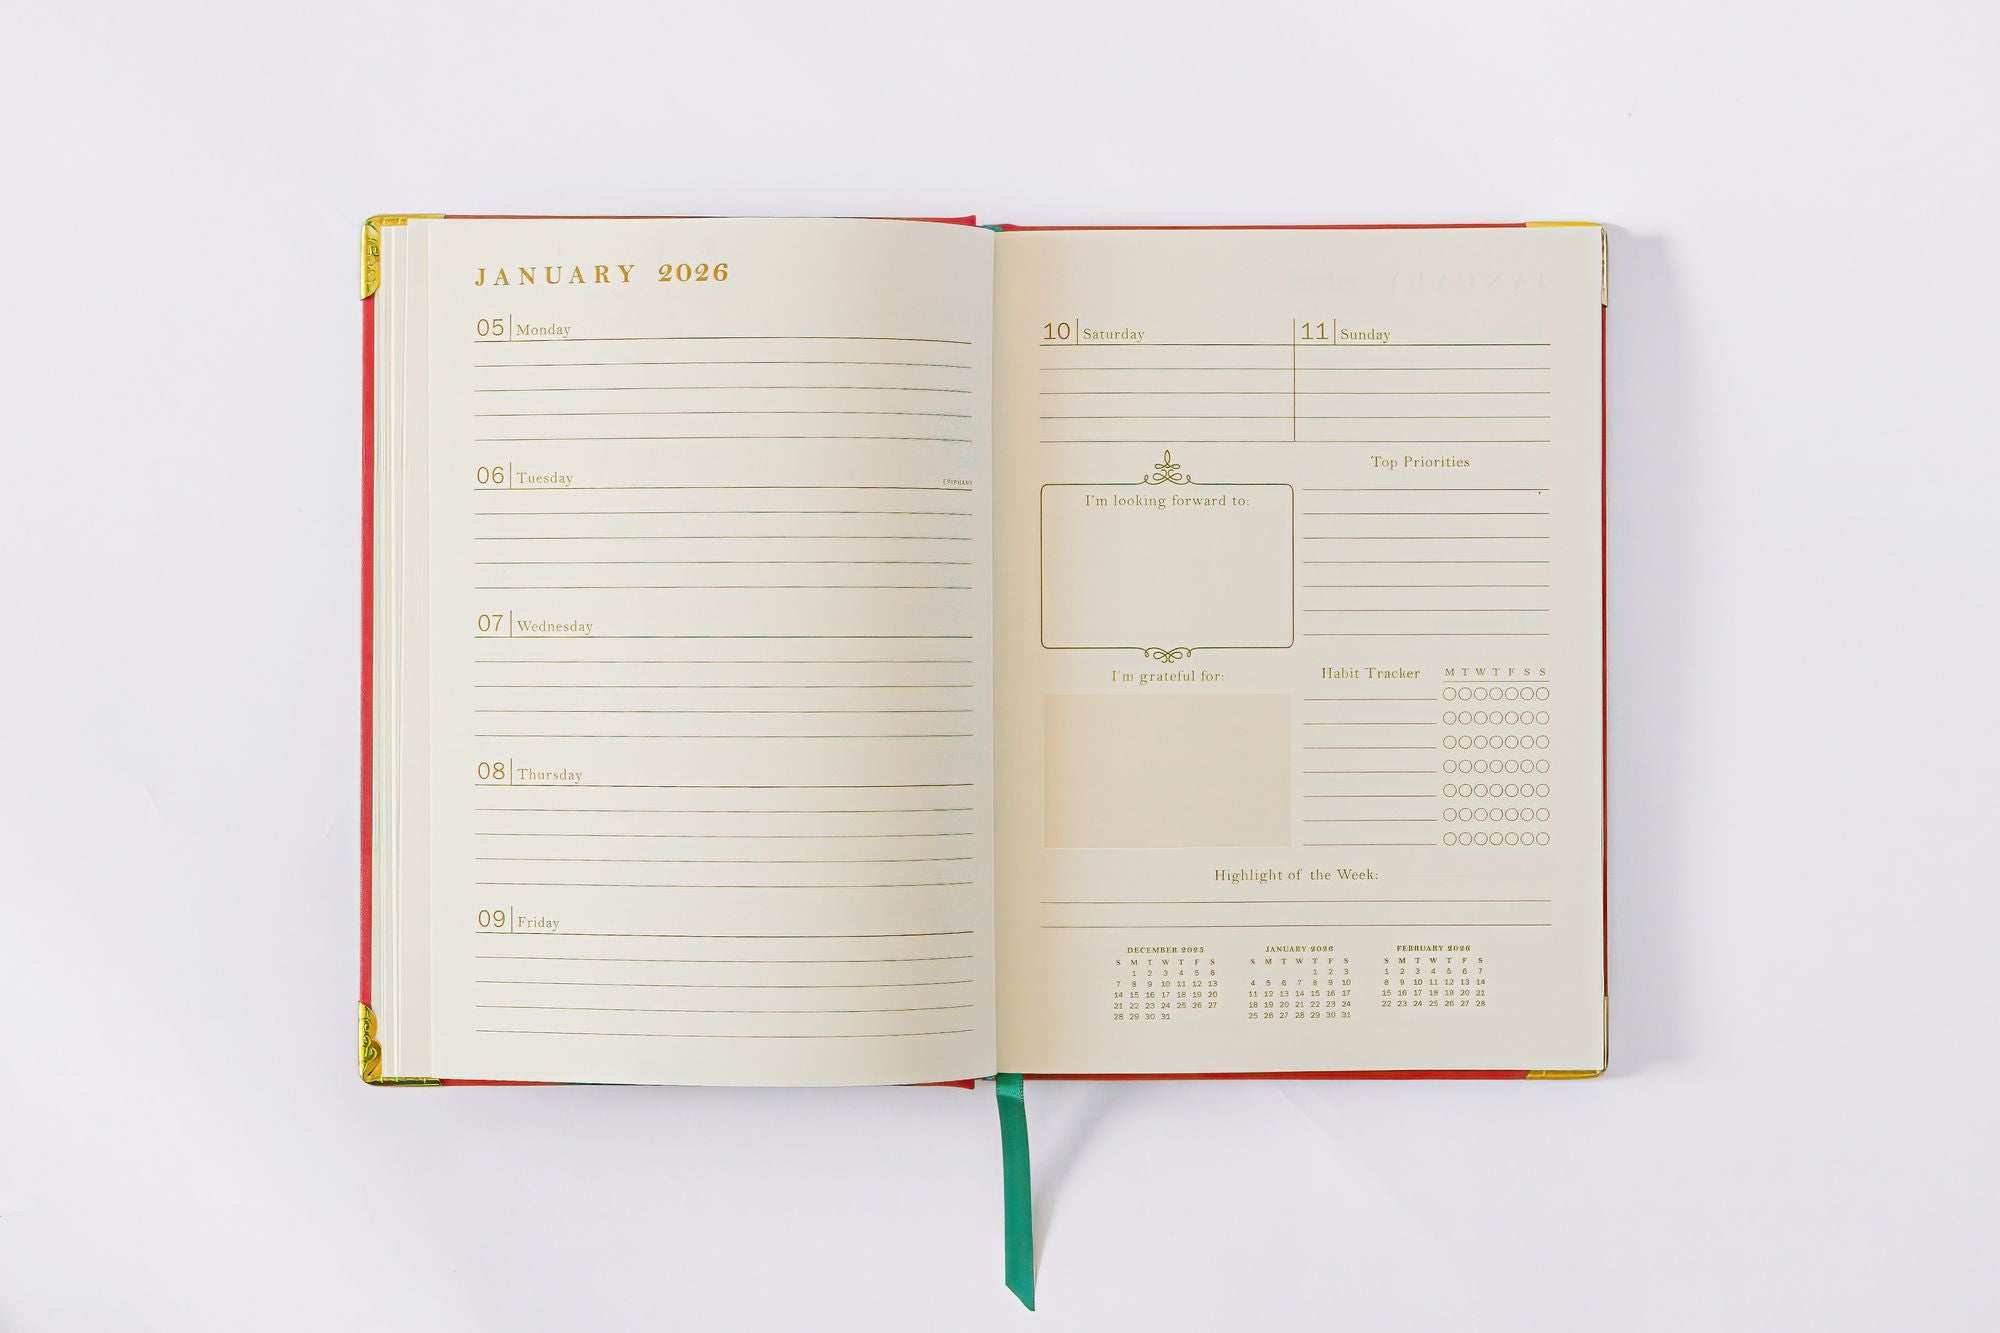 JANUARY 2026
05 Monday
06 Tuesday
EPIPHANY
07 Wednesday
08 Thursday
09 Friday
10 Saturday
11 Sunday
I'm looking forward to:
Top Priorities
I'm grateful for:
Habit Tracker M T W T F S S
Highlight of the Week:
DECEMBER 2025
S M T W T F S
1 2 3 4 5 6
7 8 9 10 11 12 13
14 15 16 17 18 19 20
21 22 23 24 25 26 27
28 29 30 31
JANUARY 2026
S M T W T F S
1 2 3
4 5 6 7 8 9 10
11 12 13 14 15 16 17
18 19 20 21 22 23 24
25 26 27 28 29 30 31
FEBRUARY 2026
S M T W T F S
1 2 3 4 5 6 7
8 9 10 11 12 13 14
15 16 17 18 19 20 21
22 23 24 25 26 27 28